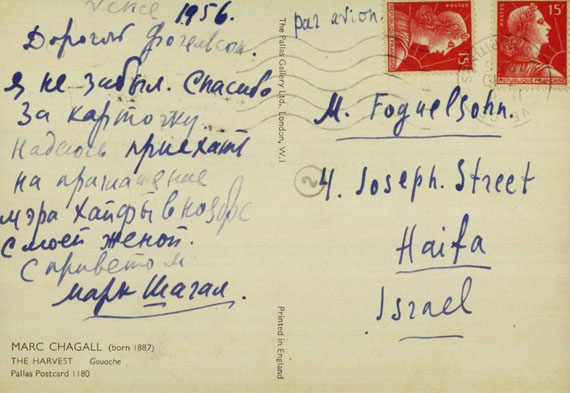 Vence 1956.
Дорогой Фогельсон.
Я не забыл. Спасибо
за карточку
Надеюсь приехать
на приглашение
мэра Хайфы в ноябре
с моей женой.
С приветом
Марк Шагал.
MARC CHAGALL (born 1887)
THE HARVEST Gouache
Pallas Postcard 1180
The Pallas Gallery Ltd., London, W.1
Printed in England
par avion.
POSTES
15F
REPUBLIQUE FRANÇAISE
POSTES
15F
REPUBLIQUE FRANÇAISE
M. Foguelsohn.
2
4. Joseph. Street
Haifa
Israel